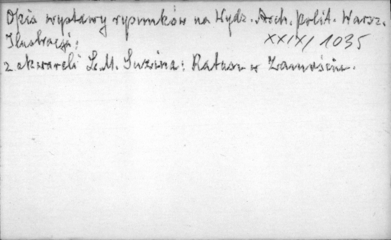 Opis wystawy rysunków na Wydz. Arch. polit. Warsz.
Ilustracje; XXIX/1035
z akwareli L. M. Suzina: Ratusz w Zamościu.